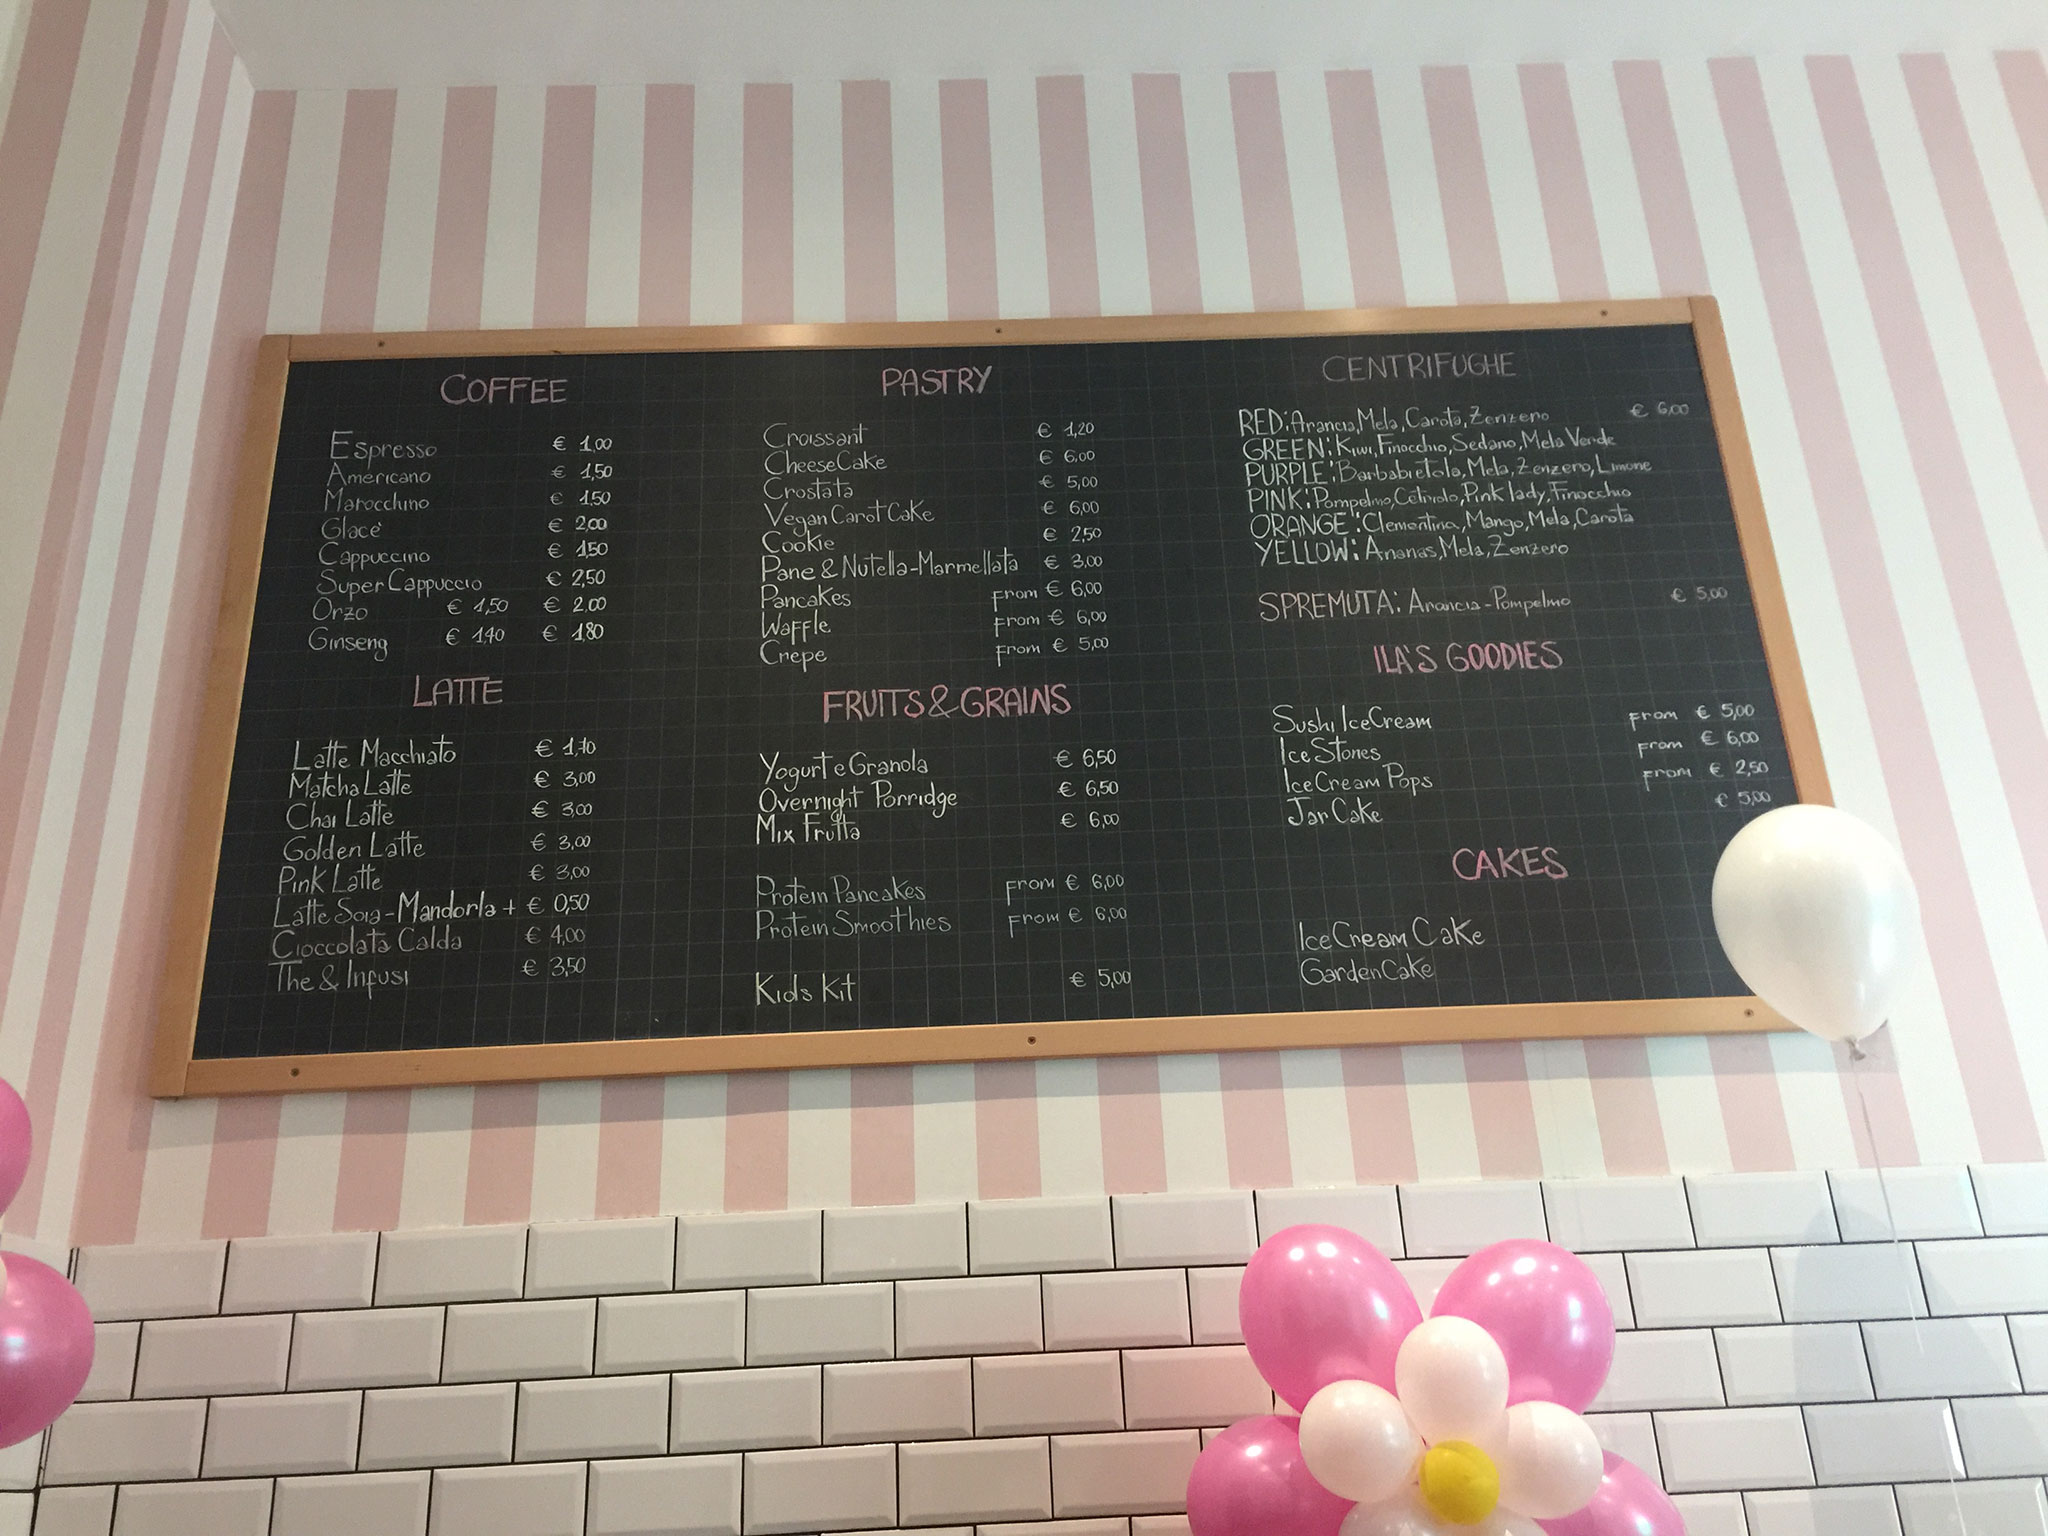 COFFEE
Espresso € 1,00
Americano € 1,50
Marocchino € 1,50
Glacè € 2,00
Cappuccino € 1,50
Super Cappuccio € 2,50
Orzo € 1,50 € 2,00
Ginseng € 1,40 € 1,80
LATTE
Latte Macchiato € 1,70
Matcha Latte € 3,00
Chai Latte € 3,00
Golden Latte € 3,00
Pink Latte € 3,00
Latte Soia-Mandorla + € 0,50
Cioccolata Calda € 4,00
The & Infusi € 3,50
PASTRY
Croissant € 1,20
CheeseCake € 6,00
Crostata € 5,00
Vegan Carot Cake € 6,00
Cookie € 2,50
Pane & Nutella-Marmellata € 3,00
Pancakes From € 6,00
Waffle From € 6,00
Crepe From € 5,00
FRUITS & GRAINS
Yogurt e Granola € 6,50
Overnight Porridge € 6,50
Mix Frutta € 6,00
Protein Pancakes From € 6,00
Protein Smoothies From € 6,00
Kids Kit € 5,00
CENTRIFUGHE
RED: Arancia, Mela, Carota, Zenzero € 6,00
GREEN: Kiwi, Finocchio, Sedano, Mela Verde
PURPLE: Barbabietola, Mela, Zenzero, Limone
PINK: Pompelmo, Cetriolo, Pink lady, Finocchio
ORANGE: Clementina, Mango, Mela, Carota
YELLOW: Ananas, Mela, Zenzero
SPREMUTA: Arancia-Pompelmo € 5,00
ILA'S GOODIES
Sushi IceCream From € 5,00
Ice Stones From € 6,00
IceCream Pops From € 2,50
Jar Cake € 5,00
CAKES
IceCream Cake
GardenCake